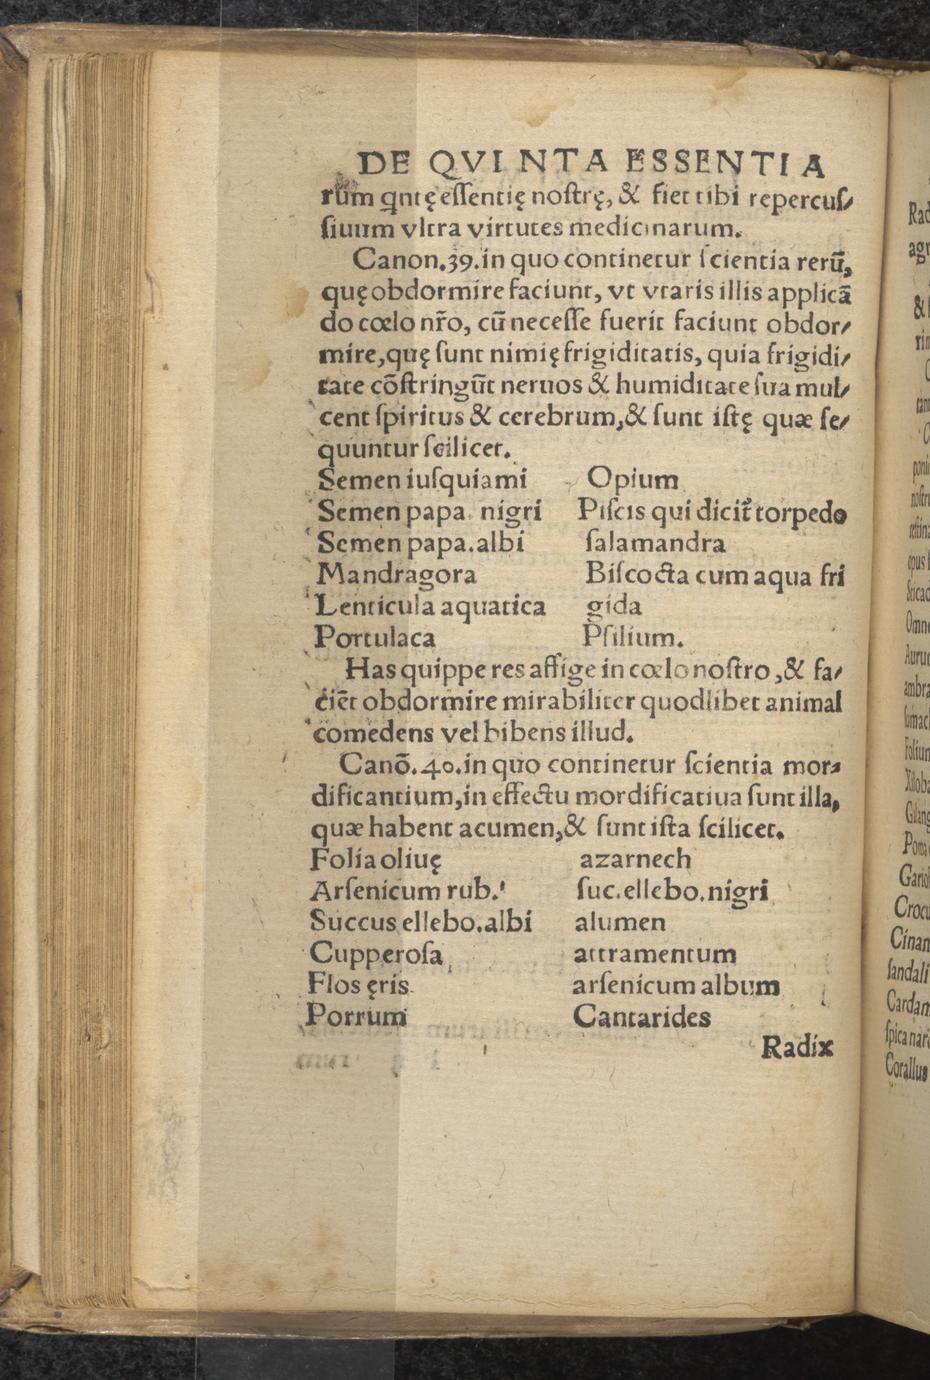 DE QVINTA ESSENTIA
rum qntę eſſentię noſtrę, & fiet tibi repercuſ⸗
ſiuum vltra virtutes medicinarum.
Canon.39.in quo continetur ſcientia rerū,
quę obdormire faciunt, vt vtaris illis applicā
do cœlo nr̄o, cū neceſſe fuerit faciunt obdor⸗
mire,quę ſunt nimię frigiditatis, quia frigidi⸗
tate cōſtringūt neruos & humiditate ſua mul⸗
cent ſpiritus & cerebrum,& ſunt iſtę quæ ſe⸗
quuntur ſcilicet.
Semen iuſquiami Opium
Semen papa. nigri Piſcis qui dicit̄ torpedo
Semen papa.albi ſalamandra
Mandragora Biſcocta cum aqua fri
Lenticula aquatica gida
Portulaca Pſilium.
Has quippe res affige in cœlo noſtro,& fa⸗
ciēt obdormire mirabiliter quodlibet animal
comedens vel bibens illud.
Canō.40.in quo continetur ſcientia mor⸗
dificantium,in effectu mordificatiua ſunt illa,
quæ habent acumen,& ſunt iſta ſcilicet.
Folia oliuę azarnech
Arſenicum rub. ſuc.ellebo.nigri
Succus ellebo.albi alumen
Cupperoſa attramentum
Flos ęris arſenicum album
Porrum Cantarides
Radix
Rad
agr
&
rin
Stica
Omne
Auru
ambra
ſumac
Folium
Xiloba
Galang
Poma
Gario
Crocu
Cinan
ſandali
Cardam
ſpica nar
Corallus